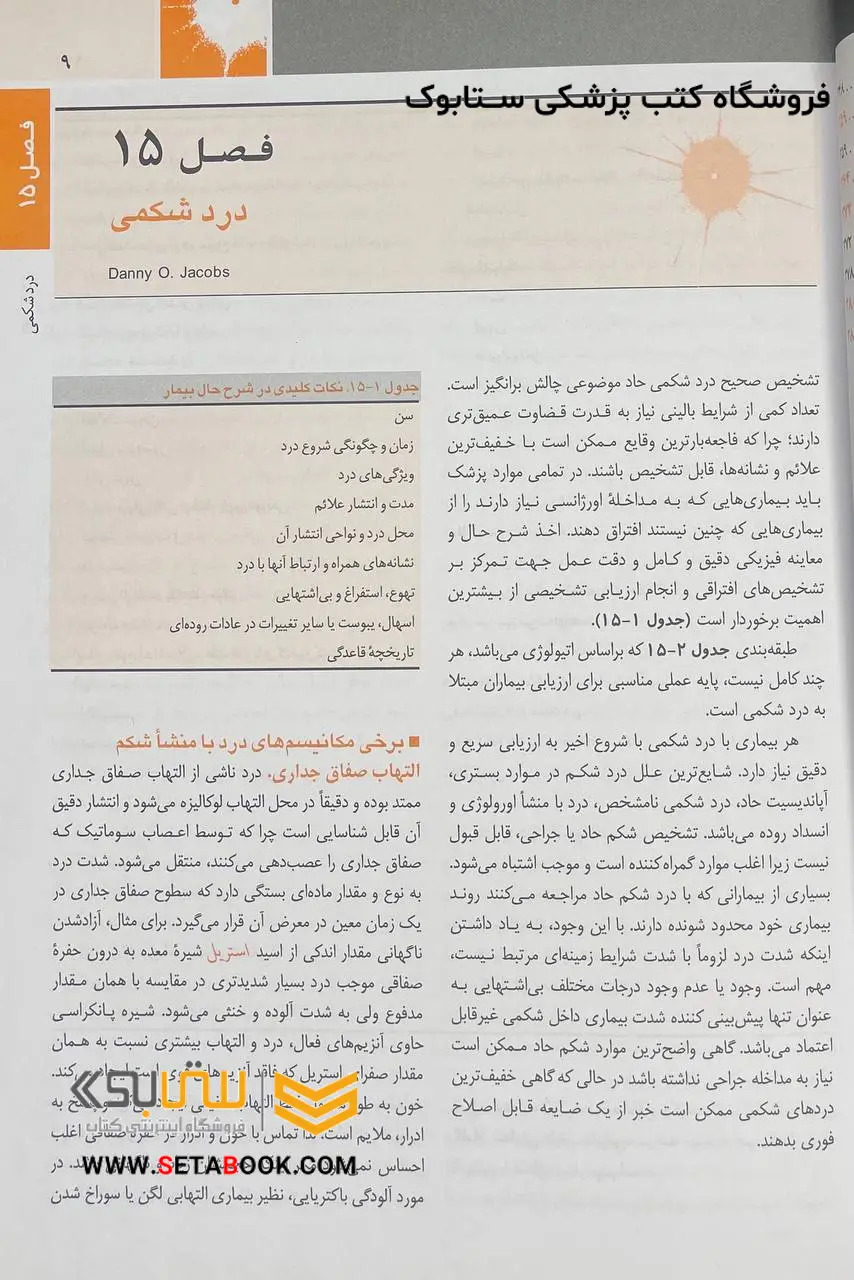 ۹
فروشگاه کتب پزشکی ستابوک
فصل ۱۵
درد شکمی
فصل ۱۵
درد شکمی
Danny O. Jacobs
تشخیص صحیح درد شکمی حاد موضوعی چالش برانگیز است.
تعداد کمی از شرایط بالینی نیاز به قدرت قضاوت عمیق‌تری
دارند؛ چرا که فاجعه‌بارترین وقایع ممکن است با خفیف‌ترین
علائم و نشانه‌ها، قابل تشخیص باشند. در تمامی موارد پزشک
باید بیماری‌هایی که به مداخلهٔ اورژانسی نیاز دارند را از
بیماری‌هایی که چنین نیستند افتراق دهند. اخذ شرح حال و
معاینه فیزیکی دقیق و کامل و دقت عمل جهت تمرکز بر
تشخیص‌های افتراقی و انجام ارزیابی تشخیصی از بیشترین
اهمیت برخوردار است (جدول ۱-۱۵).
طبقه‌بندی جدول ۲-۱۵ که براساس اتیولوژی می‌باشد، هر
چند کامل نیست، پایه عملی مناسبی برای ارزیابی بیماران مبتلا
به درد شکمی است.
هر بیماری با درد شکمی با شروع اخیر به ارزیابی سریع و
دقیق نیاز دارد. شایع‌ترین علل درد شکم در موارد بستری،
آپاندیسیت حاد، درد شکمی نامشخص، درد با منشأ اورولوژی و
انسداد روده می‌باشد. تشخیص شکم حاد یا جراحی، قابل قبول
نیست زیرا اغلب موارد گمراه‌کننده است و موجب اشتباه می‌شود.
بسیاری از بیمارانی که با درد شکم حاد مراجعه می‌کنند روند
بیماری خود محدود شونده دارند. با این وجود، به یاد داشتن
اینکه شدت درد لزوماً با شدت شرایط زمینه‌ای مرتبط نیست،
مهم است. وجود یا عدم وجود درجات مختلف بی‌اشتهایی به
عنوان تنها پیش‌بینی کننده شدت بیماری داخل شکمی غیرقابل
اعتماد می‌باشد. گاهی واضح‌ترین موارد شکم حاد ممکن است
نیاز به مداخله جراحی نداشته باشد در حالی که گاهی خفیف‌ترین
دردهای شکمی ممکن است خبر از یک ضایعه قابل اصلاح
فوری بدهند.
جدول ۱-۱۵. نکات کلیدی در شرح حال بیمار
سن
زمان و چگونگی شروع درد
ویژگی‌های درد
مدت و انتشار علائم
محل درد و نواحی انتشار آن
نشانه‌های همراه و ارتباط آنها با درد
تهوع، استفراغ و بی‌اشتهایی
اسهال، یبوست یا سایر تغییرات در عادات روده‌ای
تاریخچهٔ قاعدگی
■ برخی مکانیسم‌های درد با منشأ شکم
التهاب صفاق جداری. درد ناشی از التهاب صفاق جداری
ممتد بوده و دقیقاً در محل التهاب لوکالیزه می‌شود و انتشار دقیق
آن قابل شناسایی است چرا که توسط اعصاب سوماتیک که
صفاق جداری را عصب‌دهی می‌کنند، منتقل می‌شود. شدت درد
به نوع و مقدار ماده‌ای بستگی دارد که سطوح صفاق جداری در
یک زمان معین در معرض آن قرار می‌گیرد. برای مثال، آزادشدن
ناگهانی مقدار اندکی از اسید استریل شیرهٔ معده به درون حفرهٔ
صفاقی موجب درد بسیار شدیدتری در مقایسه با همان مقدار
مدفوع ولی به شدت آلوده و خنثی می‌شود. شیره پانکراسی
حاوی آنزیم‌های فعال، درد و التهاب بیشتری نسبت به همان
مقدار صفرای استریل که فاقد آنزیم‌های قوی است
خون به طور
ادرار، ملایم است. لذا تماس با خون و ادرار در حفره صفاقی اغلب
احساس
مورد آلودگی باکتریایی، نظیر بیماری التهابی لگن یا سوراخ شدن
ستابوک
فروشگاه اینترنتی کتاب
WWW.SETABOOK.COM